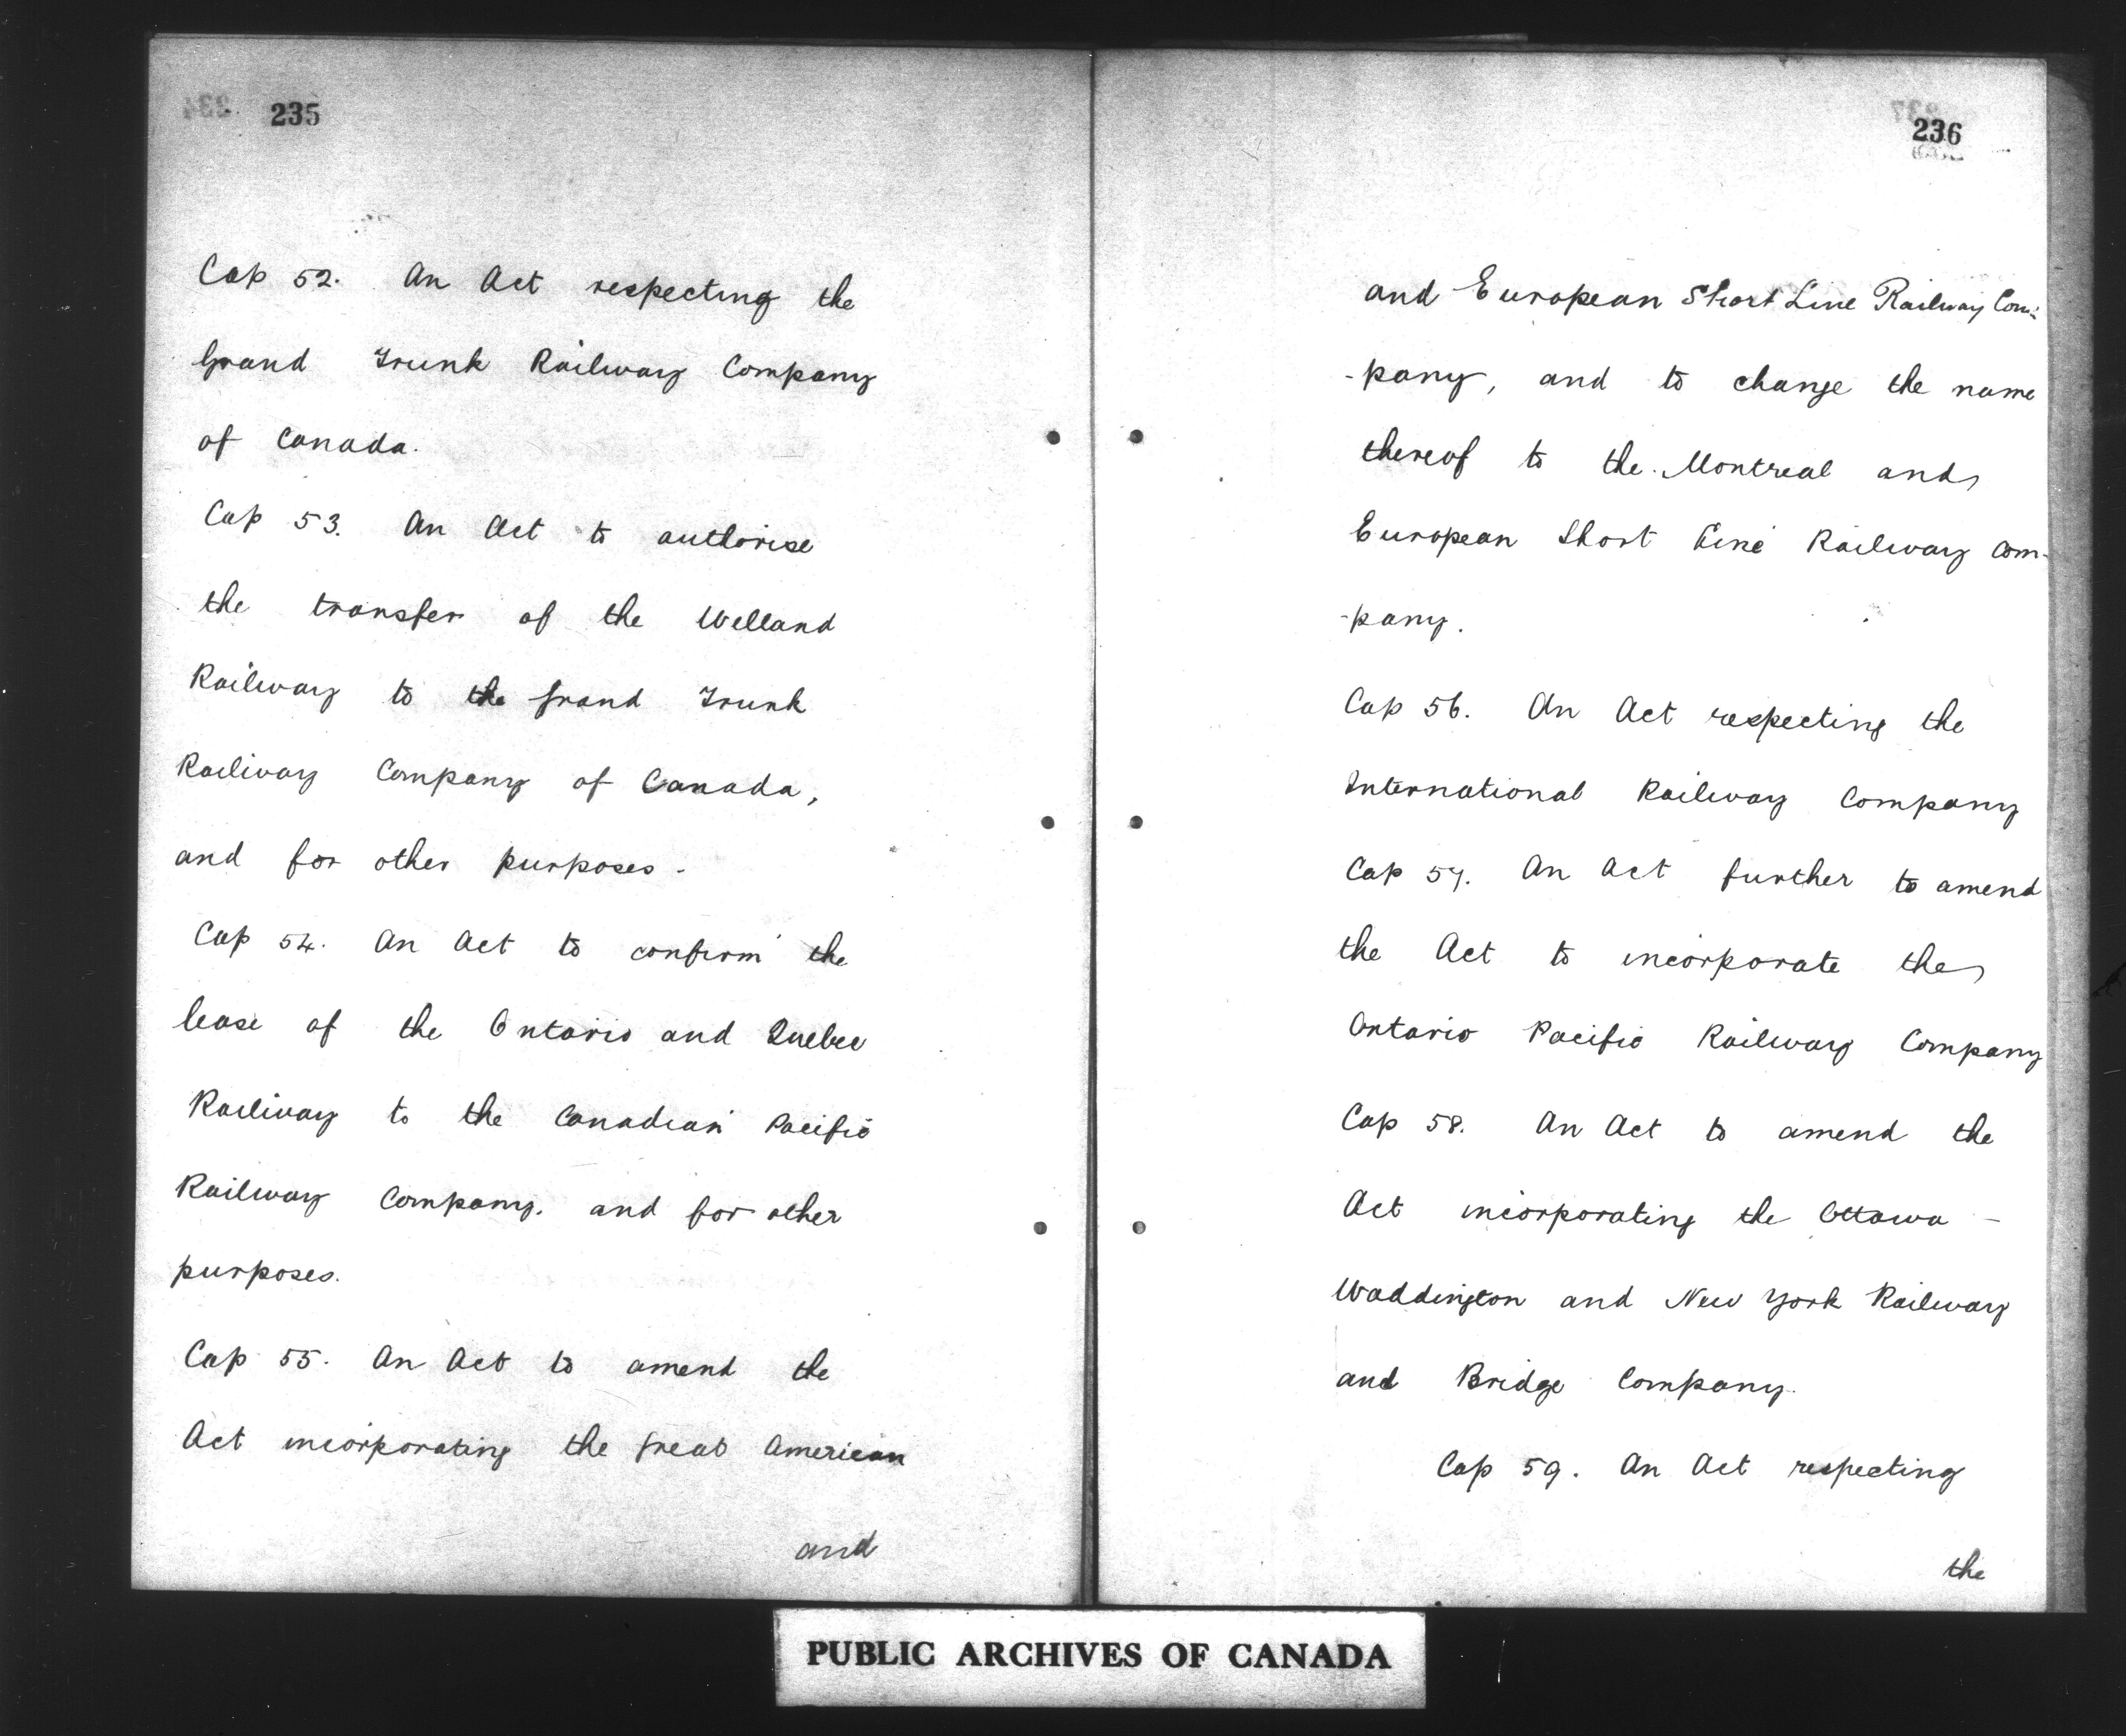 235
Cap 52. An Act respecting the
Grand Trunk Railway Company
of Canada.
Cap 53. An Act to authorise
the transfer of the Welland
Railway to the Grand Trunk
Railway Company of Canada,
and for other purposes.
Cap 54. An Act to confirm the
lease of the Ontario and Quebec
Railway to the Canadian Pacific
Railway Company. and for other
purposes.
Cap 55. An Act to amend the
Act incorporating the Great American
and
236
and European Short Line Railway Com-
-pany, and to change the name
thereof to the Montreal and
European Short Line Railway Com-
-pany.
Cap 56. An Act respecting the
International Railway Company
Cap 57. An Act further to amend
the Act to incorporate the
Ontario Pacific Railway Company
Cap 58. An Act to amend the
Act incorporating the Ottawa -
Waddington and New York Railway
and Bridge Company.
Cap 59. An Act respecting
the
PUBLIC ARCHIVES OF CANADA